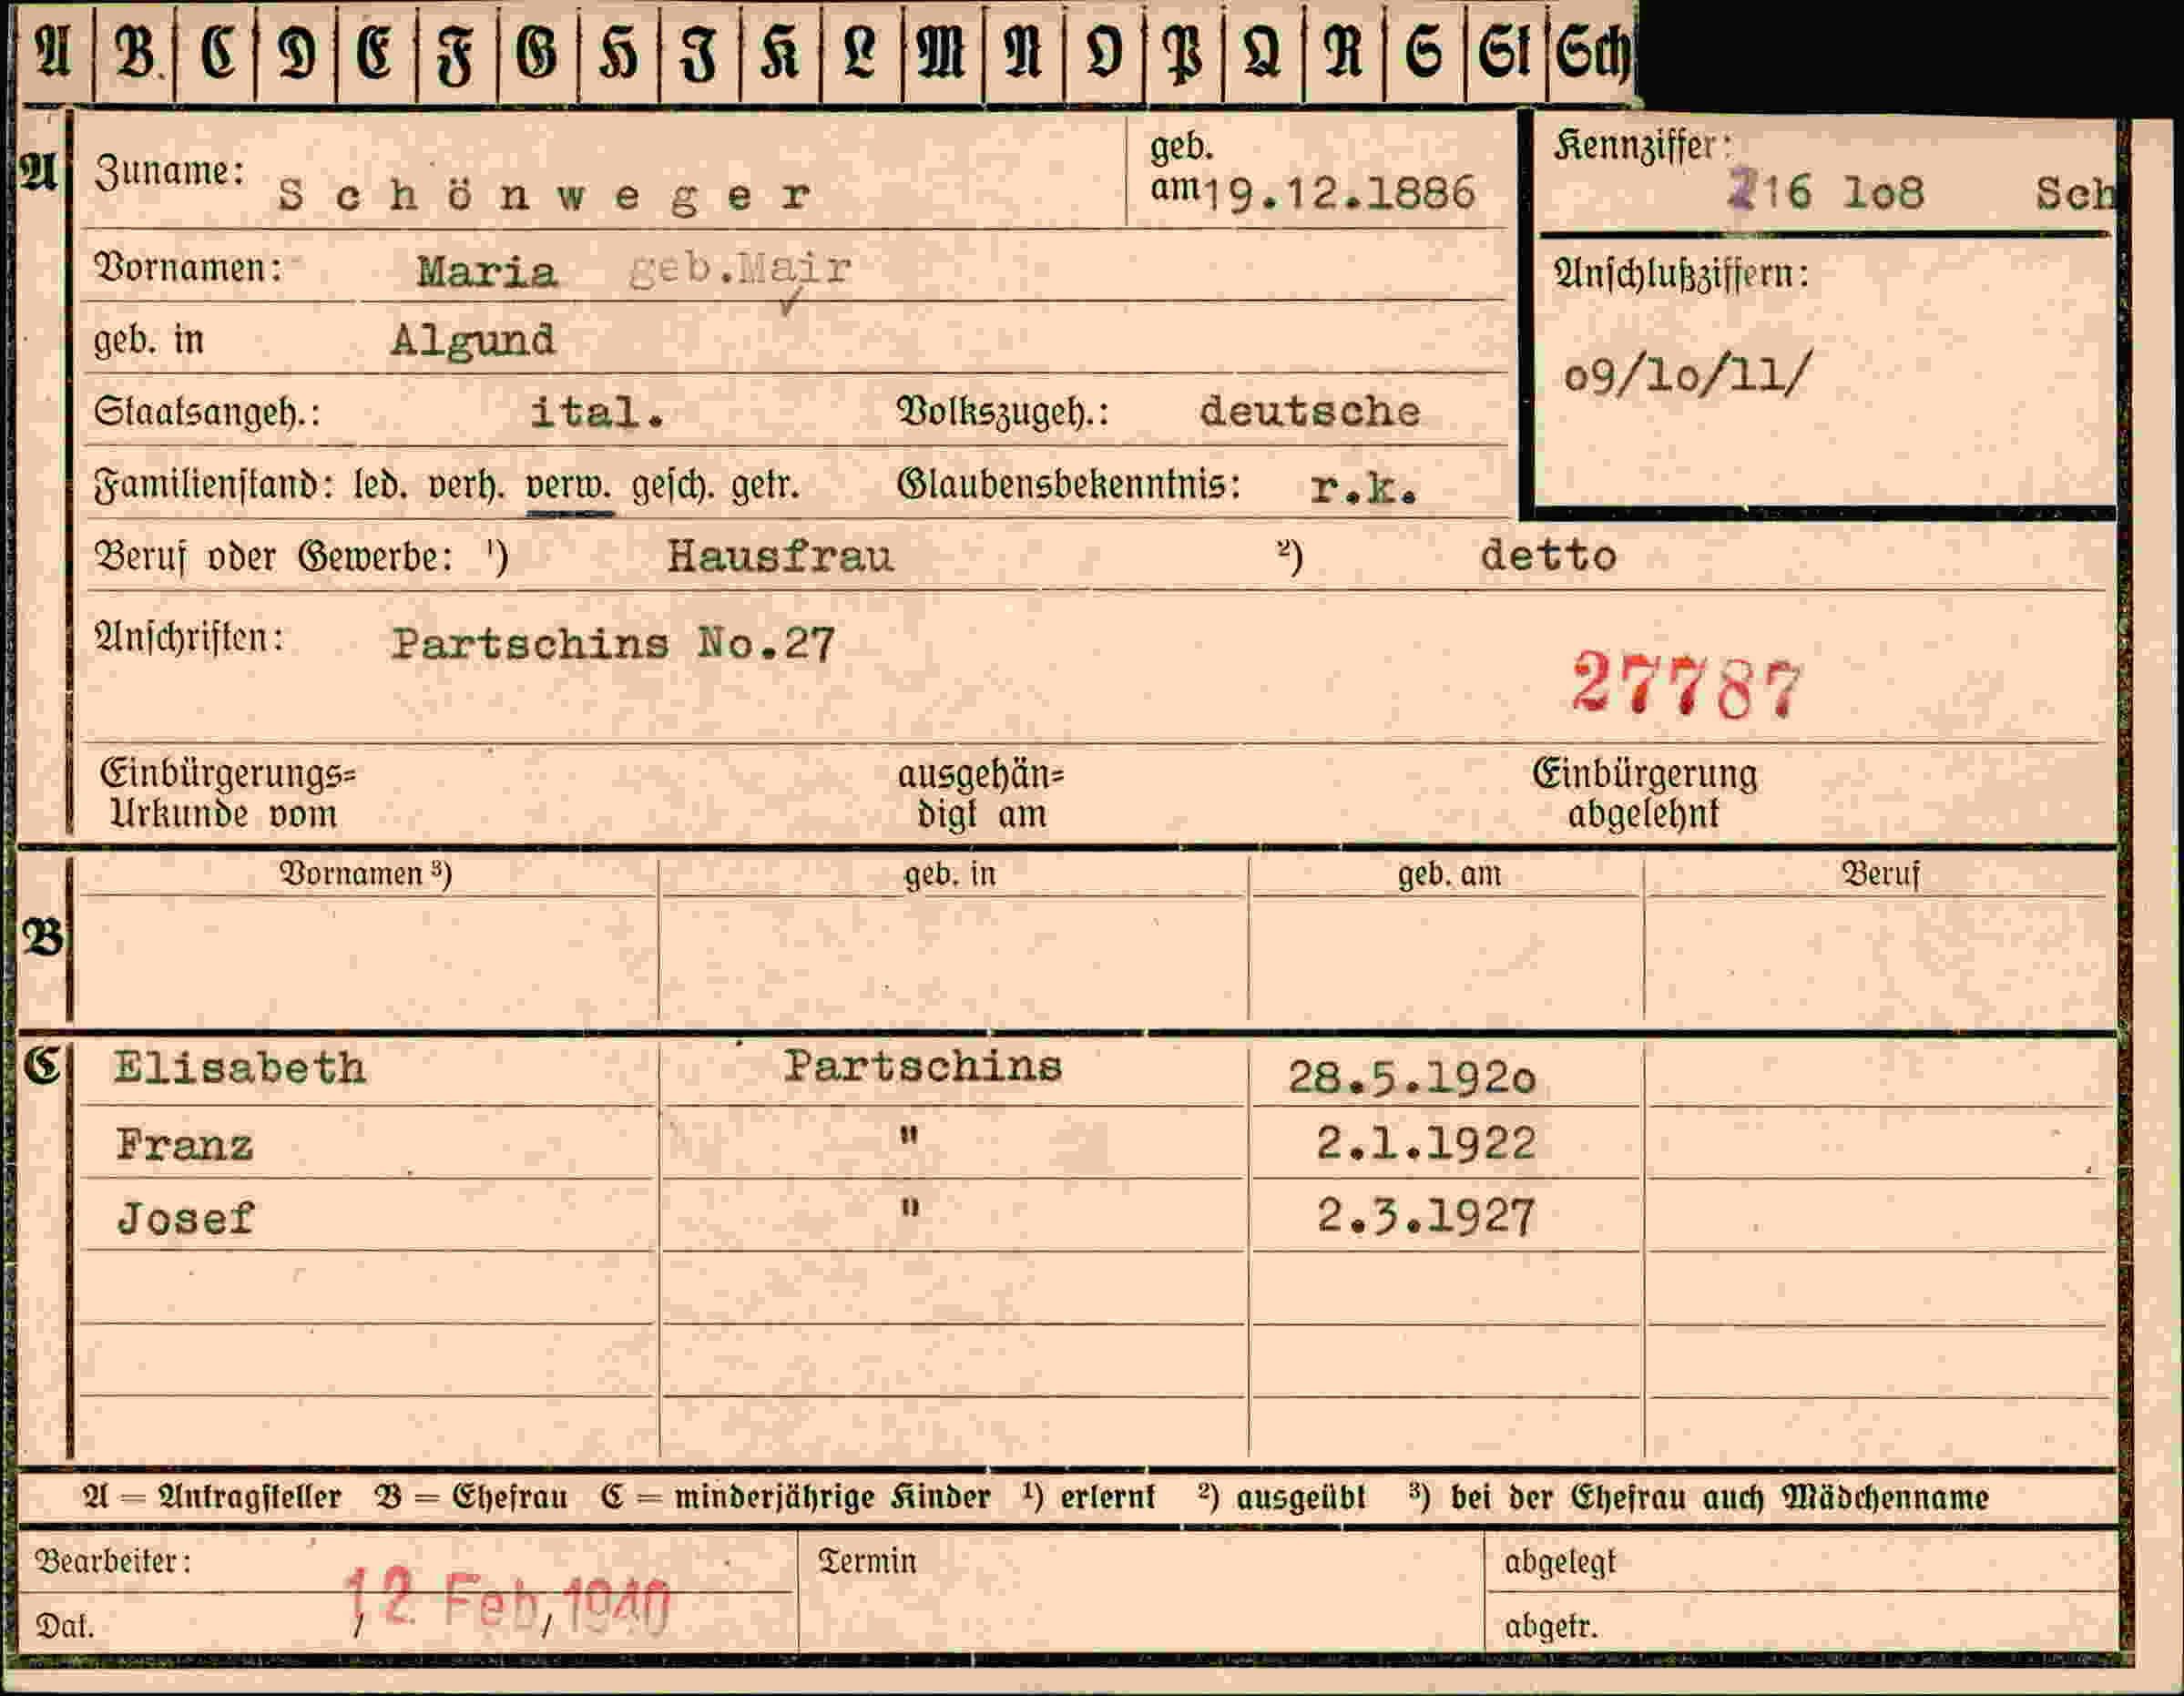 A B C D E F G H I K L M N O P Q R S St Sch
A Zuname: Schönweger geb. am 19.12.1886 Kennziffer: 216 1o8 Sch
Vornamen: Maria geb.Mair Anschlußziffern:
geb. in Algund o9/1o/11/
Staatsangeh.: ital. Volkszugeh.: deutsche
Familienstand: led. verh. verw. gesch. getr. Glaubensbekenntnis: r.k.
Beruf oder Gewerbe: ¹) Hausfrau ²) detto
Anschriften: Partschins No.27
27787
Einbürgerungs= ausgehän= Einbürgerung
Urkunde vom digt am abgelehnt
B Vornamen ³) geb. in geb. am Beruf
C Elisabeth Partschins 28.5.192o
Franz " 2.1.1922
Josef " 2.3.1927
A = Antragsteller B = Ehefrau C = minderjährige Kinder ¹) erlernt ²) ausgeübt ³) bei der Ehefrau auch Mädchenname
Bearbeiter: Termin abgelegt
12. Feb. 1940
Dat. / / abgetr.